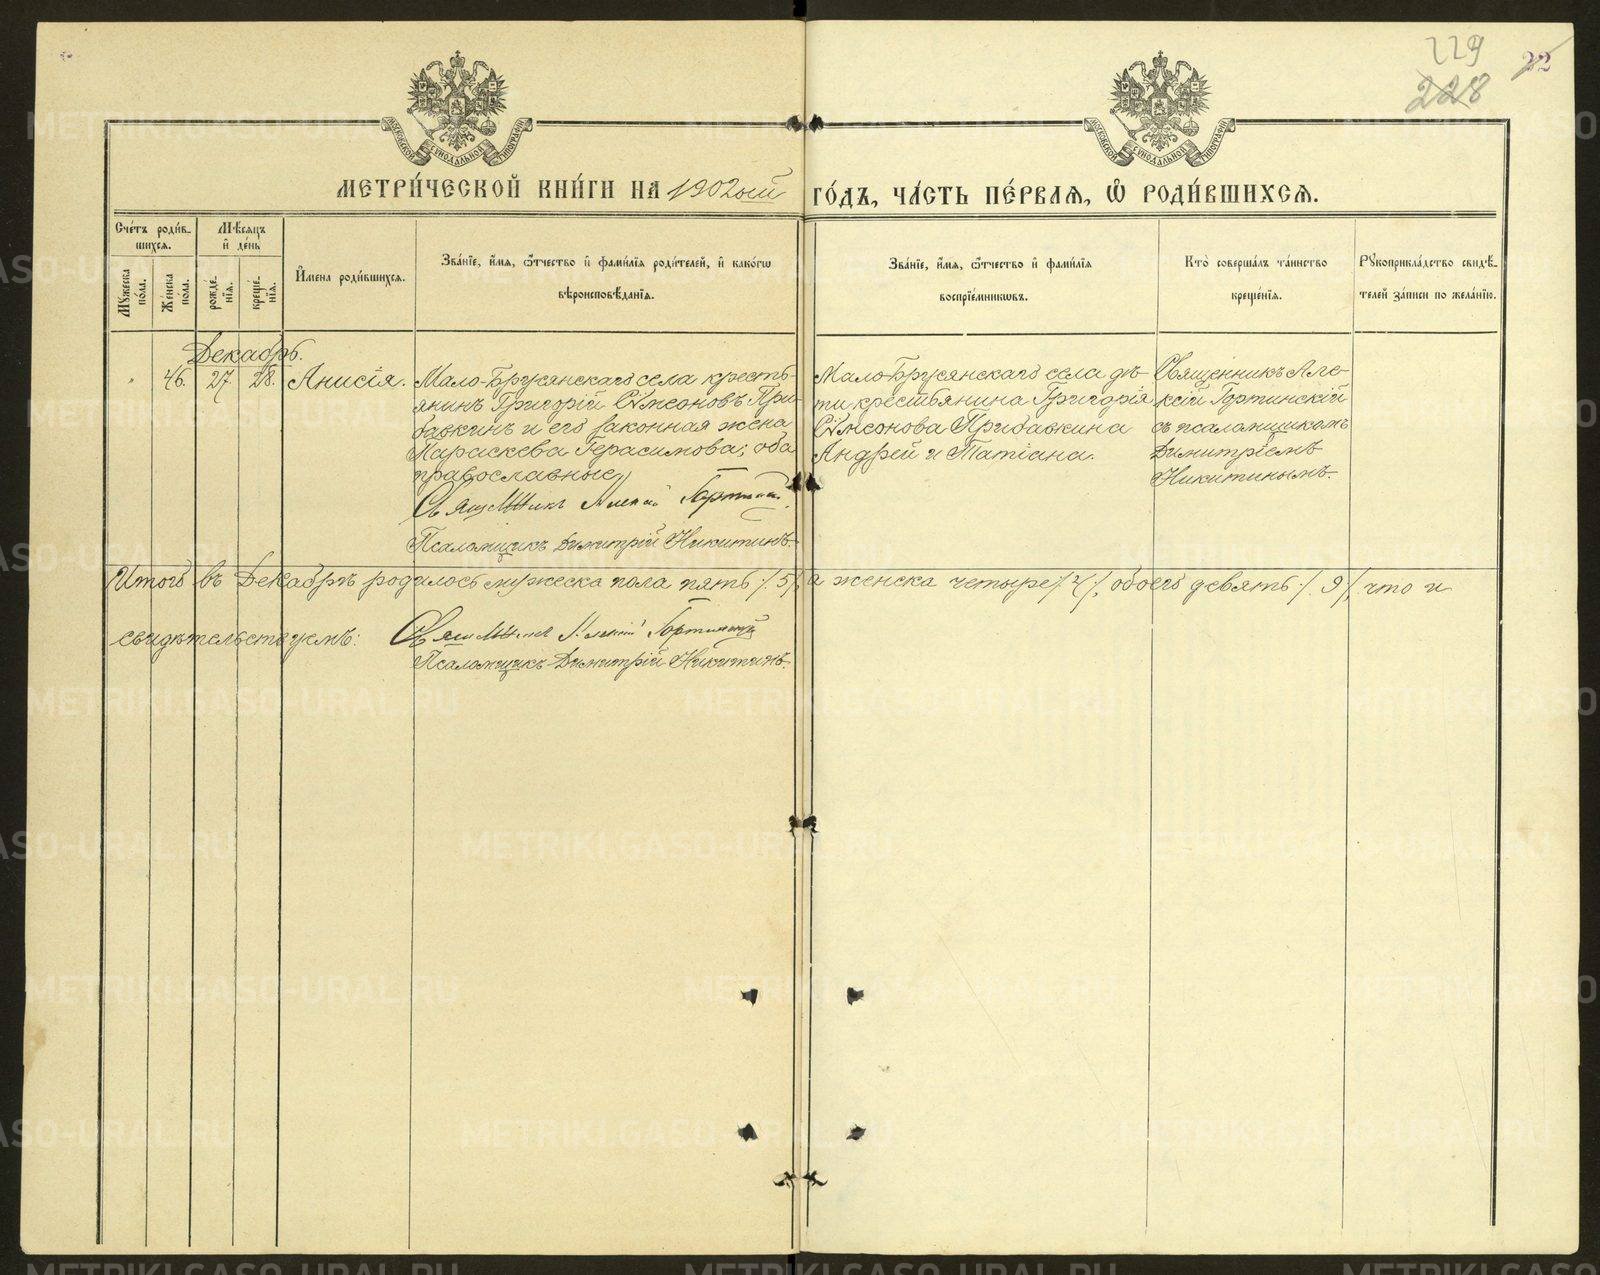 229
228
22
МОСКОВСКОЙ СѴНОДАЛЬНОЙ ТИПОГРАФІИ
МОСКОВСКОЙ СѴНОДАЛЬНОЙ ТИПОГРАФІИ
МЕТРИ́ЧЕСКОЙ КНИ́ГИ НА 1902ой ГО́ДЪ, ЧА́СТЬ ПЕ́РВАѦ, Ѽ РОДИ́ВШИХСѦ.
Сче́тъ роди́в-
шихсѧ.
Мѣ́сѧцъ
и҆ де́нь
Мꙋ́жеска
по́ла.
Же́нска
по́ла.
рожде́-
нїѧ.
креще́-
нїѧ.
И҆мена роди́вшихсѧ.
Зва́нїе, и҆́мѧ, ѻ҆́тчество и҆ фами́лїѧ роди́телей, и҆ како́гѡ
вѣроисповѣ́данїѧ.
Зва́нїе, и҆́мѧ, ѻ҆́тчество и҆ фами́лїѧ
воспрїе́мникѡвъ.
Кто̀ соверша́лъ та́инство
креще́нїѧ.
Рꙋкоприкла́дство свидѣ́-
телей за́писи по жела́нїю.
Декабрь.
46. 27. 28. Анисія.
Мало-Брусянскаго села кресть-
янинъ Григорій Сѵмеоновъ При-
бавкинъ и его законная жена
Параскева Герасимова; оба
православные
Священникъ Алексій Гортинскій.
Псаломщикъ Димитрій Никитинъ.
Мало-Брусянскаго села дѣ-
ти крестьянина Григорія
Сѵмеонова Прибавкина
Андрей и Татіана.
Священникъ Але-
ксій Гортинскій
съ псаломщикомъ
Димитріемъ
Никитинымъ.
Итого въ Декабрѣ родилось мужеска пола пять /5/, а женска четыре /4/, обоего девять /9/, что и
свидѣтельствуемъ:
Священникъ Алексій Гортинскій
Псаломщикъ Димитрій Никитинъ.
METRIKI.GASO-URAL.RU